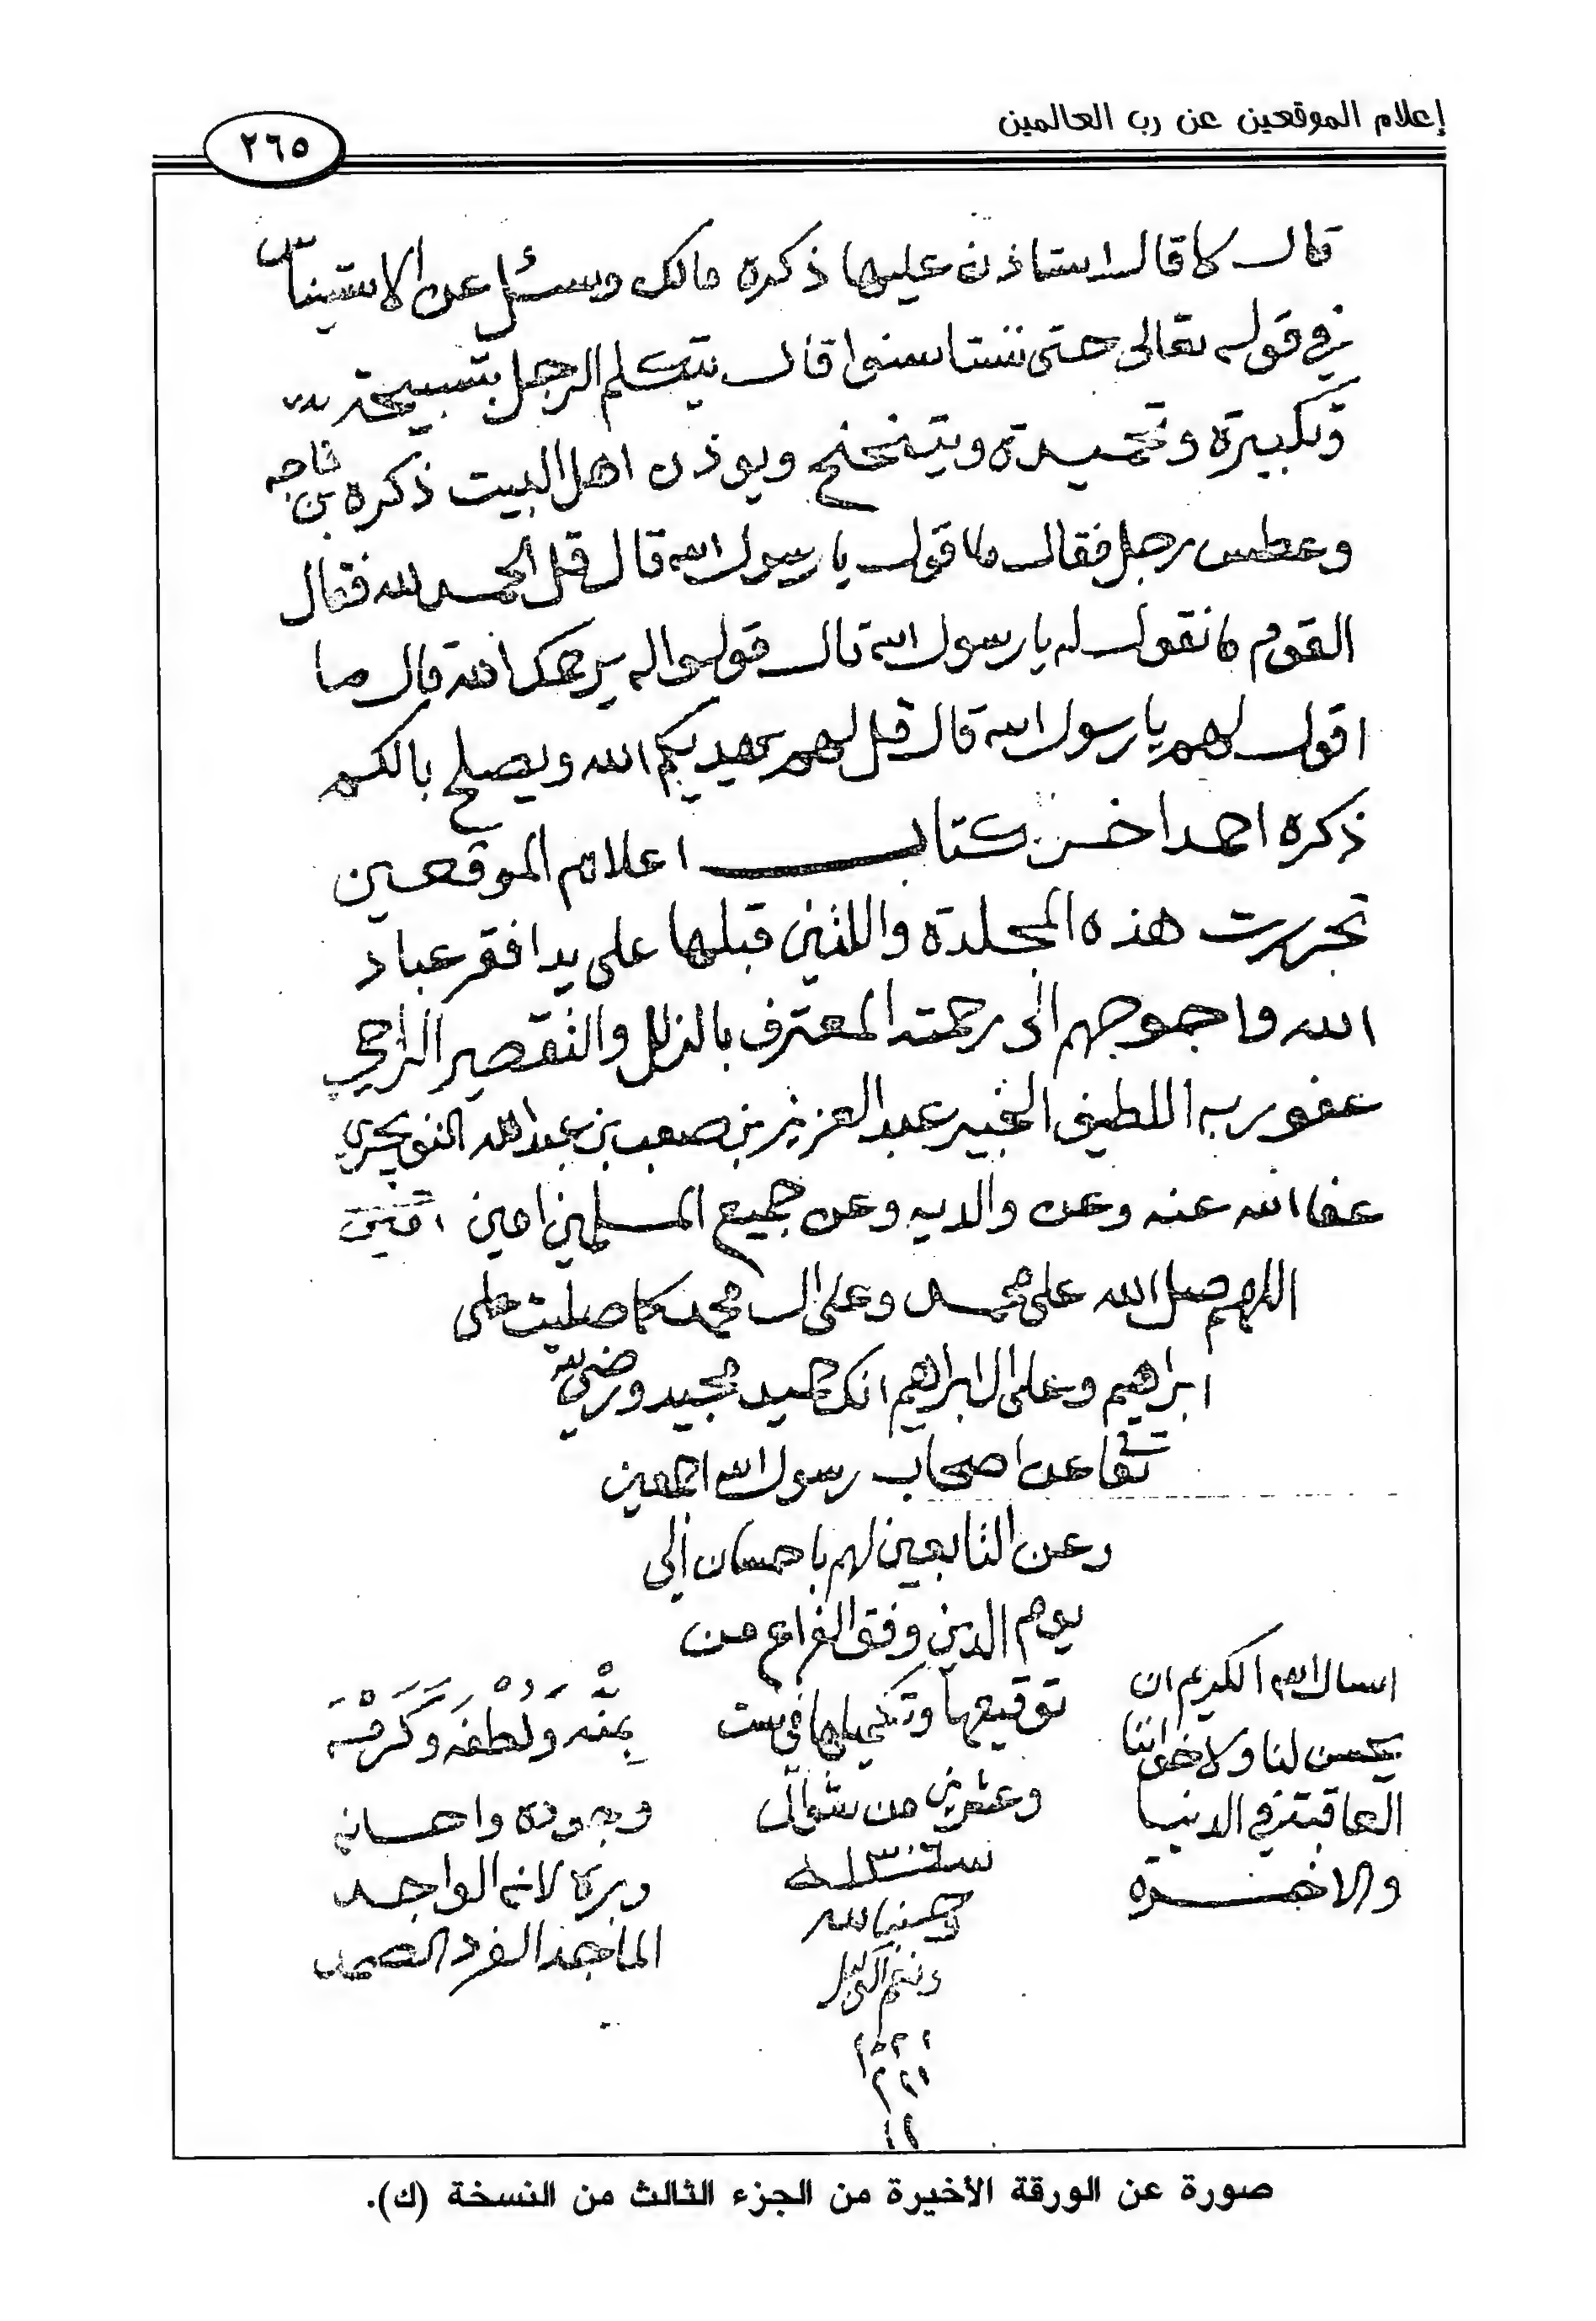 إعلام الموقعين عن رب العالمين
٢٦٥
قال لا قال استاذن عليها ذكره مالك وسئل عن الاستيناس
في قوله تعالى حتى تستانسوا قال يتكلم الرجل بتسبيحة
وتكبيرة وتحميدة ويتنحنح ويوذن اهل البيت ذكره بن ماجه
وعطس رجل فقال ما اقول يا رسول الله قال قل الحمد لله فقال
القوم ما نقول له يا رسول الله قال قولوا له يرحمك الله قال ما
اقول لهم يا رسول الله قال قل لهم يهديكم الله ويصلح بالكم
ذكره احمد اخر كتاب اعلام الموقعين
تحررت هذه المجلدة واللتين قبلها على يد افقر عباد
الله واحوجهم الى رحمته المعترف بالزلل والتقصير الراجي
عفو ربه اللطيف الخبير عبد العزيز بن صعب بن عبد الله التويجري
عفا الله عنه وعن والديه وعن جميع المسلمين امين امين
اللهم صل الله على محمد وعلى ال محمد كما صليت على
ابراهيم وعلى ال ابراهيم انك حميد مجيد ورضي الله
تعا عن اصحاب رسول الله اجمعين
وعن التابعين لهم باحسان الى
يوم الدين وفق الفراغ من
توقيعها وتكميلها في ست
وعشرين من شوال
سنة
وحسبنا الله
ونعم الوكيل
اسال الله الكريم ان
يحسن لنا ولاخواننا
العاقبة في الدنيا
والاخرة
بِمَنِّه وَلُطْفِه وَكَرَمِه
وجوده واحسانه
وبره لانه الواحد
الماجد الفرد الصمد
صورة عن الورقة الأخيرة من الجزء الثالث من النسخة (ك).